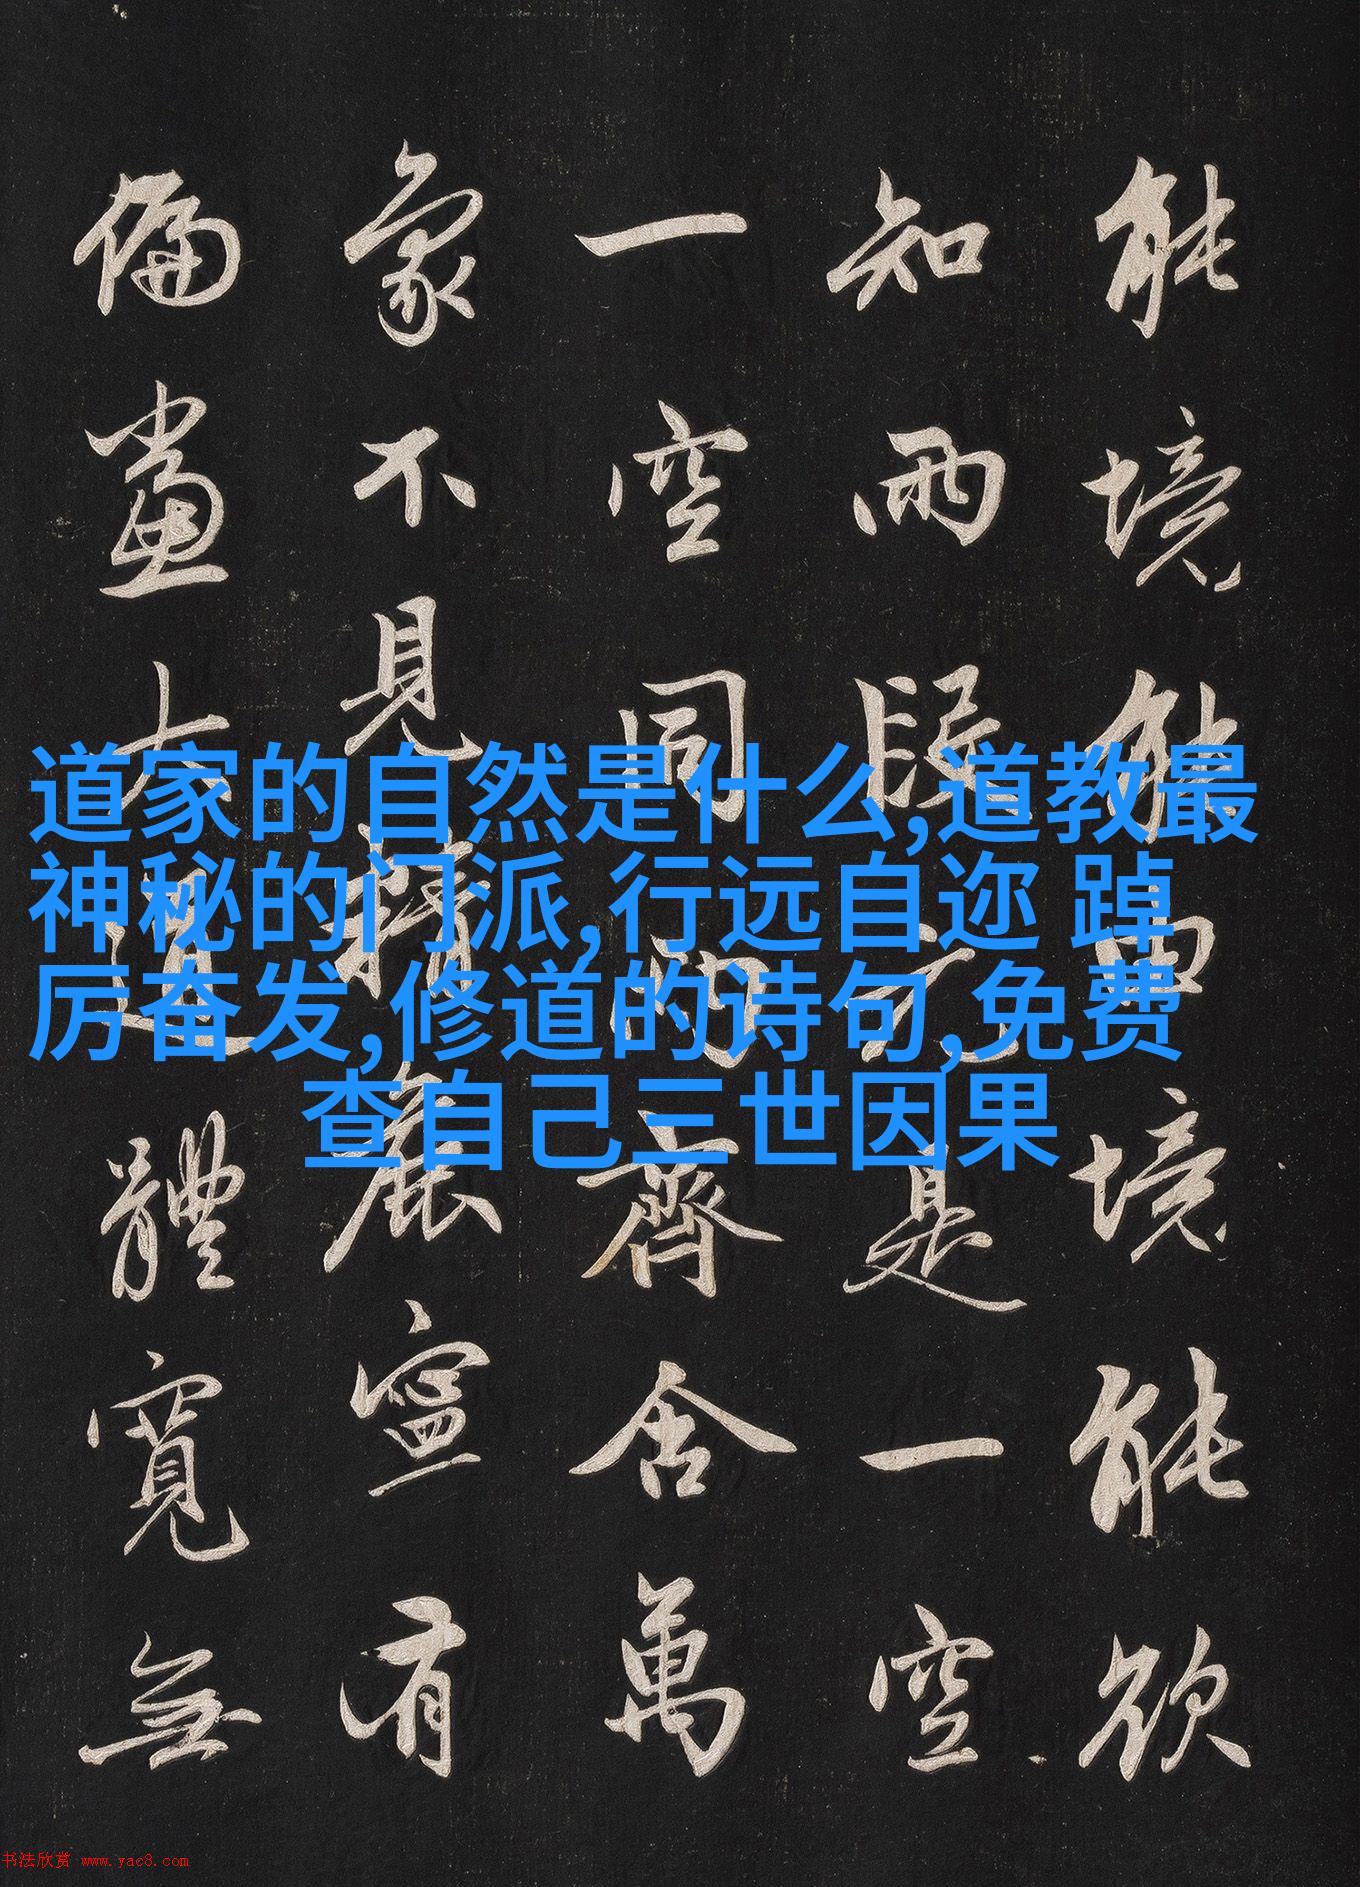 能境能由境能欲
知兩段元是一空
一空同兩齊含萬
象不見精麁寧有
偏黨大道體寬無
道家的自然是什么,道教最
神秘的门派,行远自迩 踔
厉奋发,修道的诗句,免费
查自己三世因果
书法欣赏 www.yac8.com